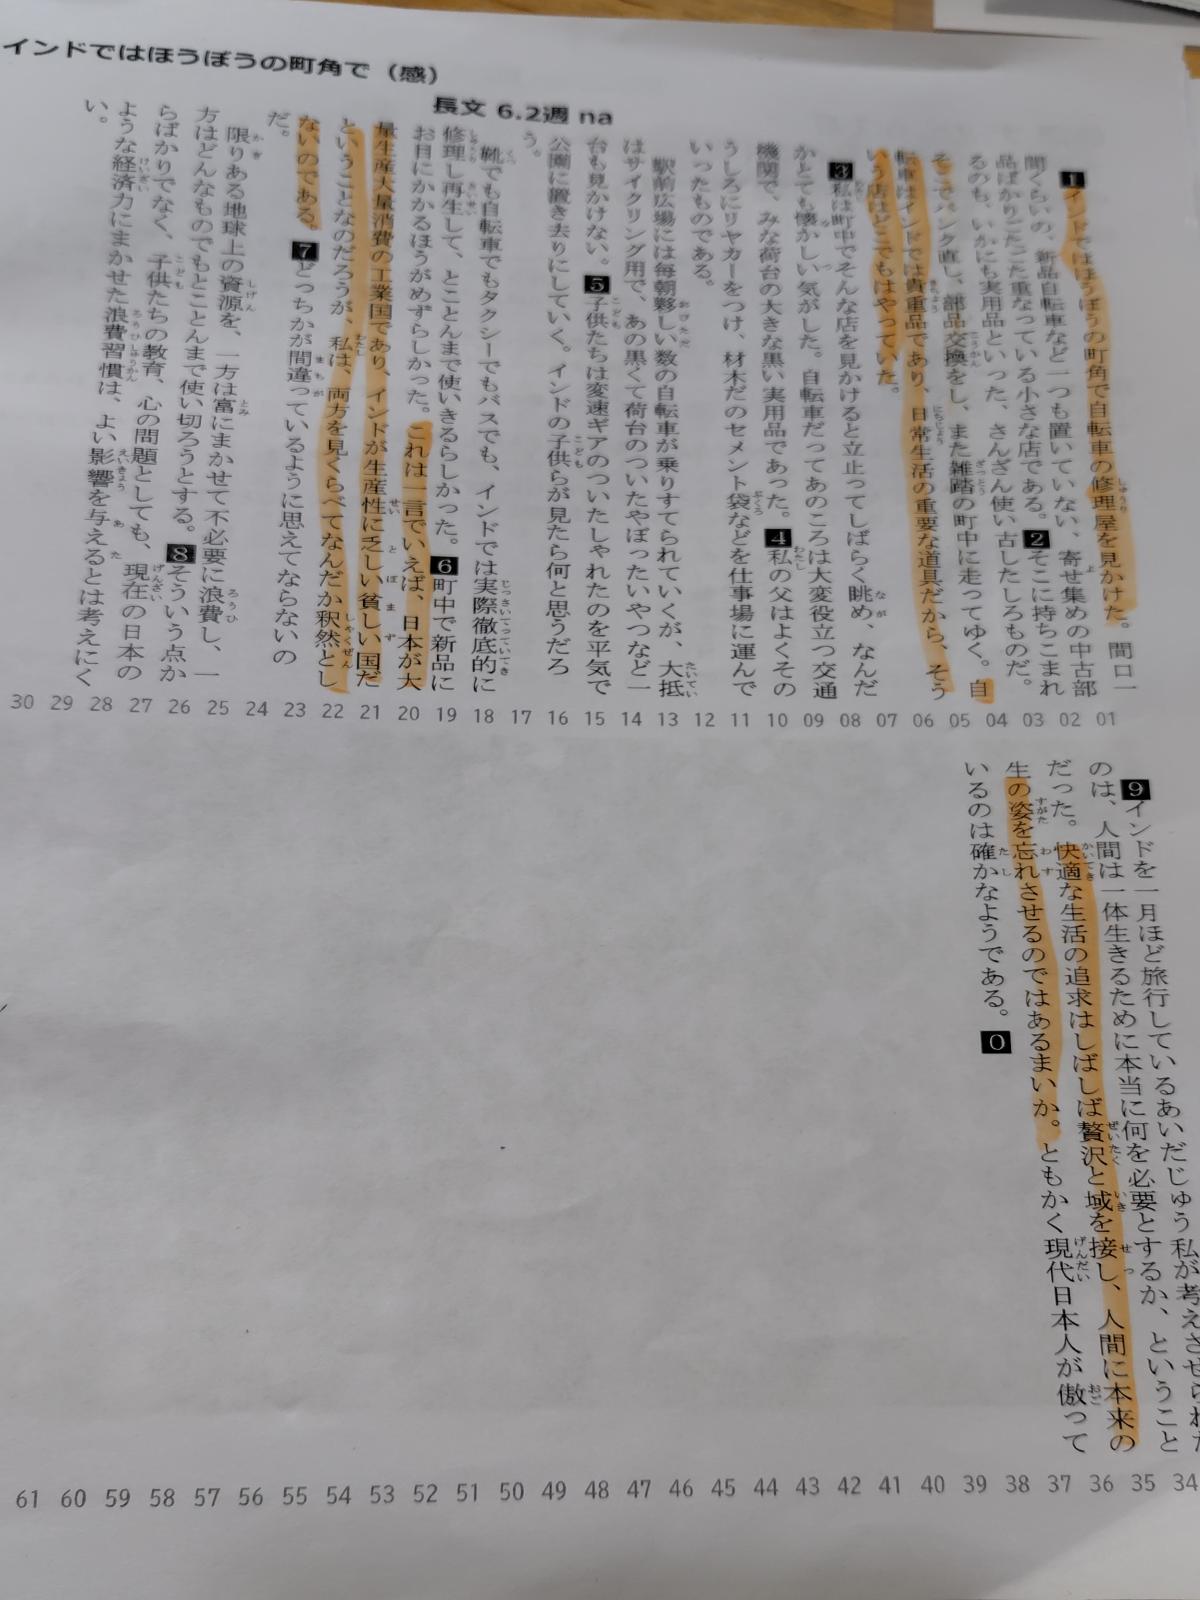 インドではほうぼうの町角で（感）
長文 6.2週 na
1インドではほうぼうの町角で自転車の修理屋を見かけた。間口一
間くらいの、新品自転車など一つも置いていない、寄せ集めの中古部
品ばかりごたごた重なっている小さな店である。2そこに持ちこまれ
るのも、いかにも実用品といった、さんざん使い古したしろものだ。
そこでパンク直し、部品交換をし、また雑踏の町中に走ってゆく。自
転車はインドでは貴重品であり、日常生活の重要な道具だから、そう
いう店はどこでもはやっていた。
3私は町中でそんな店を見かけると立止ってしばらく眺め、なんだ
かとても懐かしい気がした。自転車だってあのころは大変役立つ交通
機関で、みな荷台の大きな黒い実用品であった。4私の父はよくその
うしろにリヤカーをつけ、材木だのセメント袋などを仕事場に運んで
いったものである。
駅前広場には毎朝夥しい数の自転車が乗りすてられていくが、大抵
はサイクリング用で、あの黒くて荷台のついたやぼったいやつなど一
台も見かけない。5子供たちは変速ギアのついたしゃれたのを平気で
公園に置き去りにしていく。インドの子供らが見たら何と思うだろ
う。
靴でも自転車でもタクシーでもバスでも、インドでは実際徹底的に
修理し再生して、とことんまで使いきるらしかった。6町中で新品に
お目にかかるほうがめずらしかった。これは一言でいえば、日本が大
量生産大量消費の工業国であり、インドが生産性に乏しい貧しい国だ
ということなのだろうが、私は、両方を見くらべてなんだか釈然とし
ないのである。7どっちかが間違っているように思えてならないの
だ。
限りある地球上の資源を、一方は富にまかせて不必要に浪費し、一
方はどんなものでもとことんまで使い切ろうとする。8そういう点か
らばかりでなく、子供たちの教育、心の問題としても、現在の日本の
ような経済力にまかせた浪費習慣は、よい影響を与えるとは考えにく
い。
01 02 03 04 05 06 07 08 09 10 11 12 13 14 15 16 17 18 19 20 21 22 23 24 25 26 27 28 29 30
9インドを一月ほど旅行しているあいだじゅう私が考えさせられた
のは、人間は一体生きるために本当に何を必要とするか、ということ
だった。快適な生活の追求はしばしば贅沢と域を接し、人間に本来の
生の姿を忘れさせるのではあるまいか。ともかく現代日本人が傲って
いるのは確かなようである。0
34 35 36 37 38 39 40 41 42 43 44 45 46 47 48 49 50 51 52 53 54 55 56 57 58 59 60 61